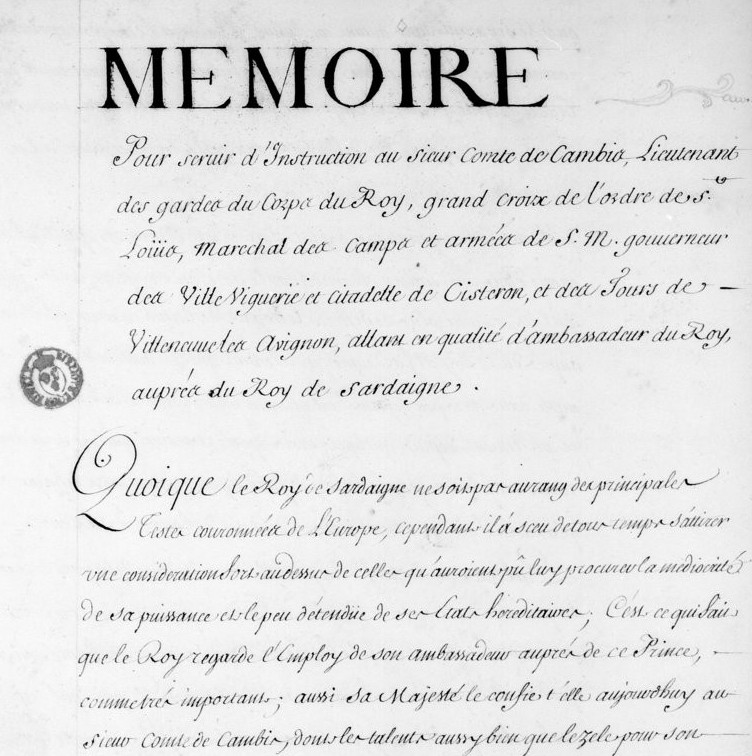 MEMOIRE
Pour seruir d'Instruction au Sieur Comte de Cambis, Lieutenant
des gardes du Corps du Roy, grand Croix de l'ordre de S.t
Loüis, Marechal des Camps et armées de S. M. gouuerneur
des Ville Viguerie et Citadelle de Cisteron, et des Tours de –
Villeneuue lés Avignon, allant en qualité d'ambassadeur du Roy,
auprés du Roy de Sardaigne.
Quoique le Roy de Sardaigne ne soit pas au rang des principales
Testes couronnées de L'Europe, cependant il à sceu de tous temps s'áttirer
vne consideration fort audessus de celles qu'auroient pû luy procurer la médiocrité
de sa puissance et le peu d'étendüe de ses Etats héréditaires; C'est ce qui fait
que le Roy regarde l'Employ de son ambassadeur auprés de ce Prince, –
comme trés important; aussi Sa Majesté le confie t'elle aujourdhuy au
Sieur Comte de Cambis, dont les talents aussy bien que le zele pour son